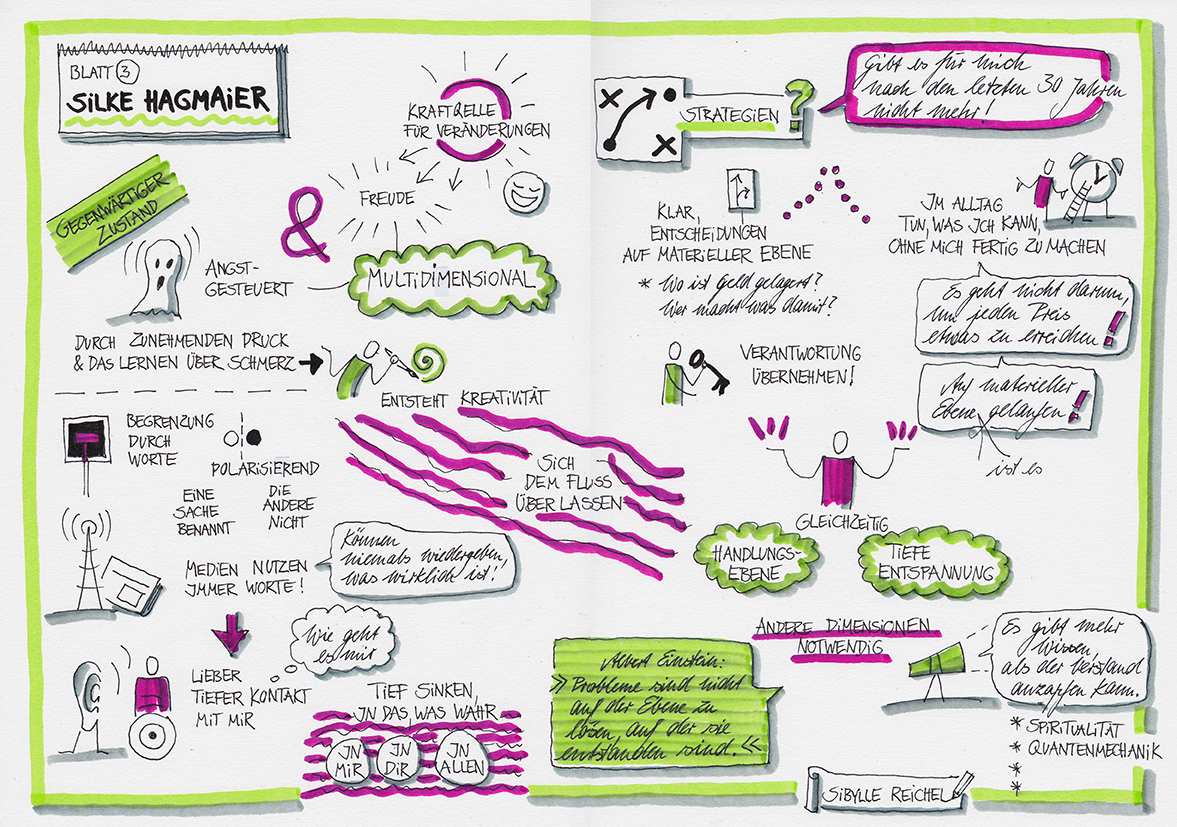 BLATT 3
SILKE HAGMAIER
GEGENWÄRTIGER
ZUSTAND
ANGST-
GESTEUERT
KRAFTQELLE
FÜR VERÄNDERUNGEN
FREUDE
&
MULTIDIMENSIONAL
DURCH ZUNEHMENDEN DRUCK
& DAS LERNEN ÜBER SCHMERZ
ENTSTEHT KREATIVITÄT
BEGRENZUNG
DURCH
WORTE
POLARISIEREND
EINE
SACHE
BENANNT
DIE
ANDERE
NICHT
MEDIEN NUTZEN
IMMER WORTE!
Können
niemals wiedergeben,
was wirklich ist!
SICH
DEM FLUSS
ÜBERLASSEN
LIEBER
TIEFER KONTAKT
MIT MIR
Wie geht
es mir
TIEF SINKEN,
IN DAS WAS WAHR
IN
MIR
IN
DIR
IN
ALLEN
STRATEGIEN
?
Gibt es für mich
nach den letzten 30 Jahren
nicht mehr!
KLAR,
ENTSCHEIDUNGEN
AUF MATERIELLER EBENE
* Wo ist Geld gelagert?
Wer macht was damit?
IM ALLTAG
TUN, WAS ICH KANN,
OHNE MICH FERTIG ZU MACHEN
Es geht nicht darum,
um jeden Preis
etwas zu erreichen!
Auf materieller
Ebene gelaufen!
ist es
VERANTWORTUNG
ÜBERNEHMEN!
GLEICHZEITIG
HANDLUNGS-
EBENE
TIEFE
ENTSPANNUNG
ANDERE DIMENSIONEN
NOTWENDIG
Es gibt mehr
Wissen,
als der Verstand
anzapfen kann.
* SPIRITUALITÄT
* QUANTENMECHANIK
*
*
Albert Einstein:
»Probleme sind nicht
auf der Ebene zu
lösen, auf der sie
entstanden sind.«
SIBYLLE REICHEL